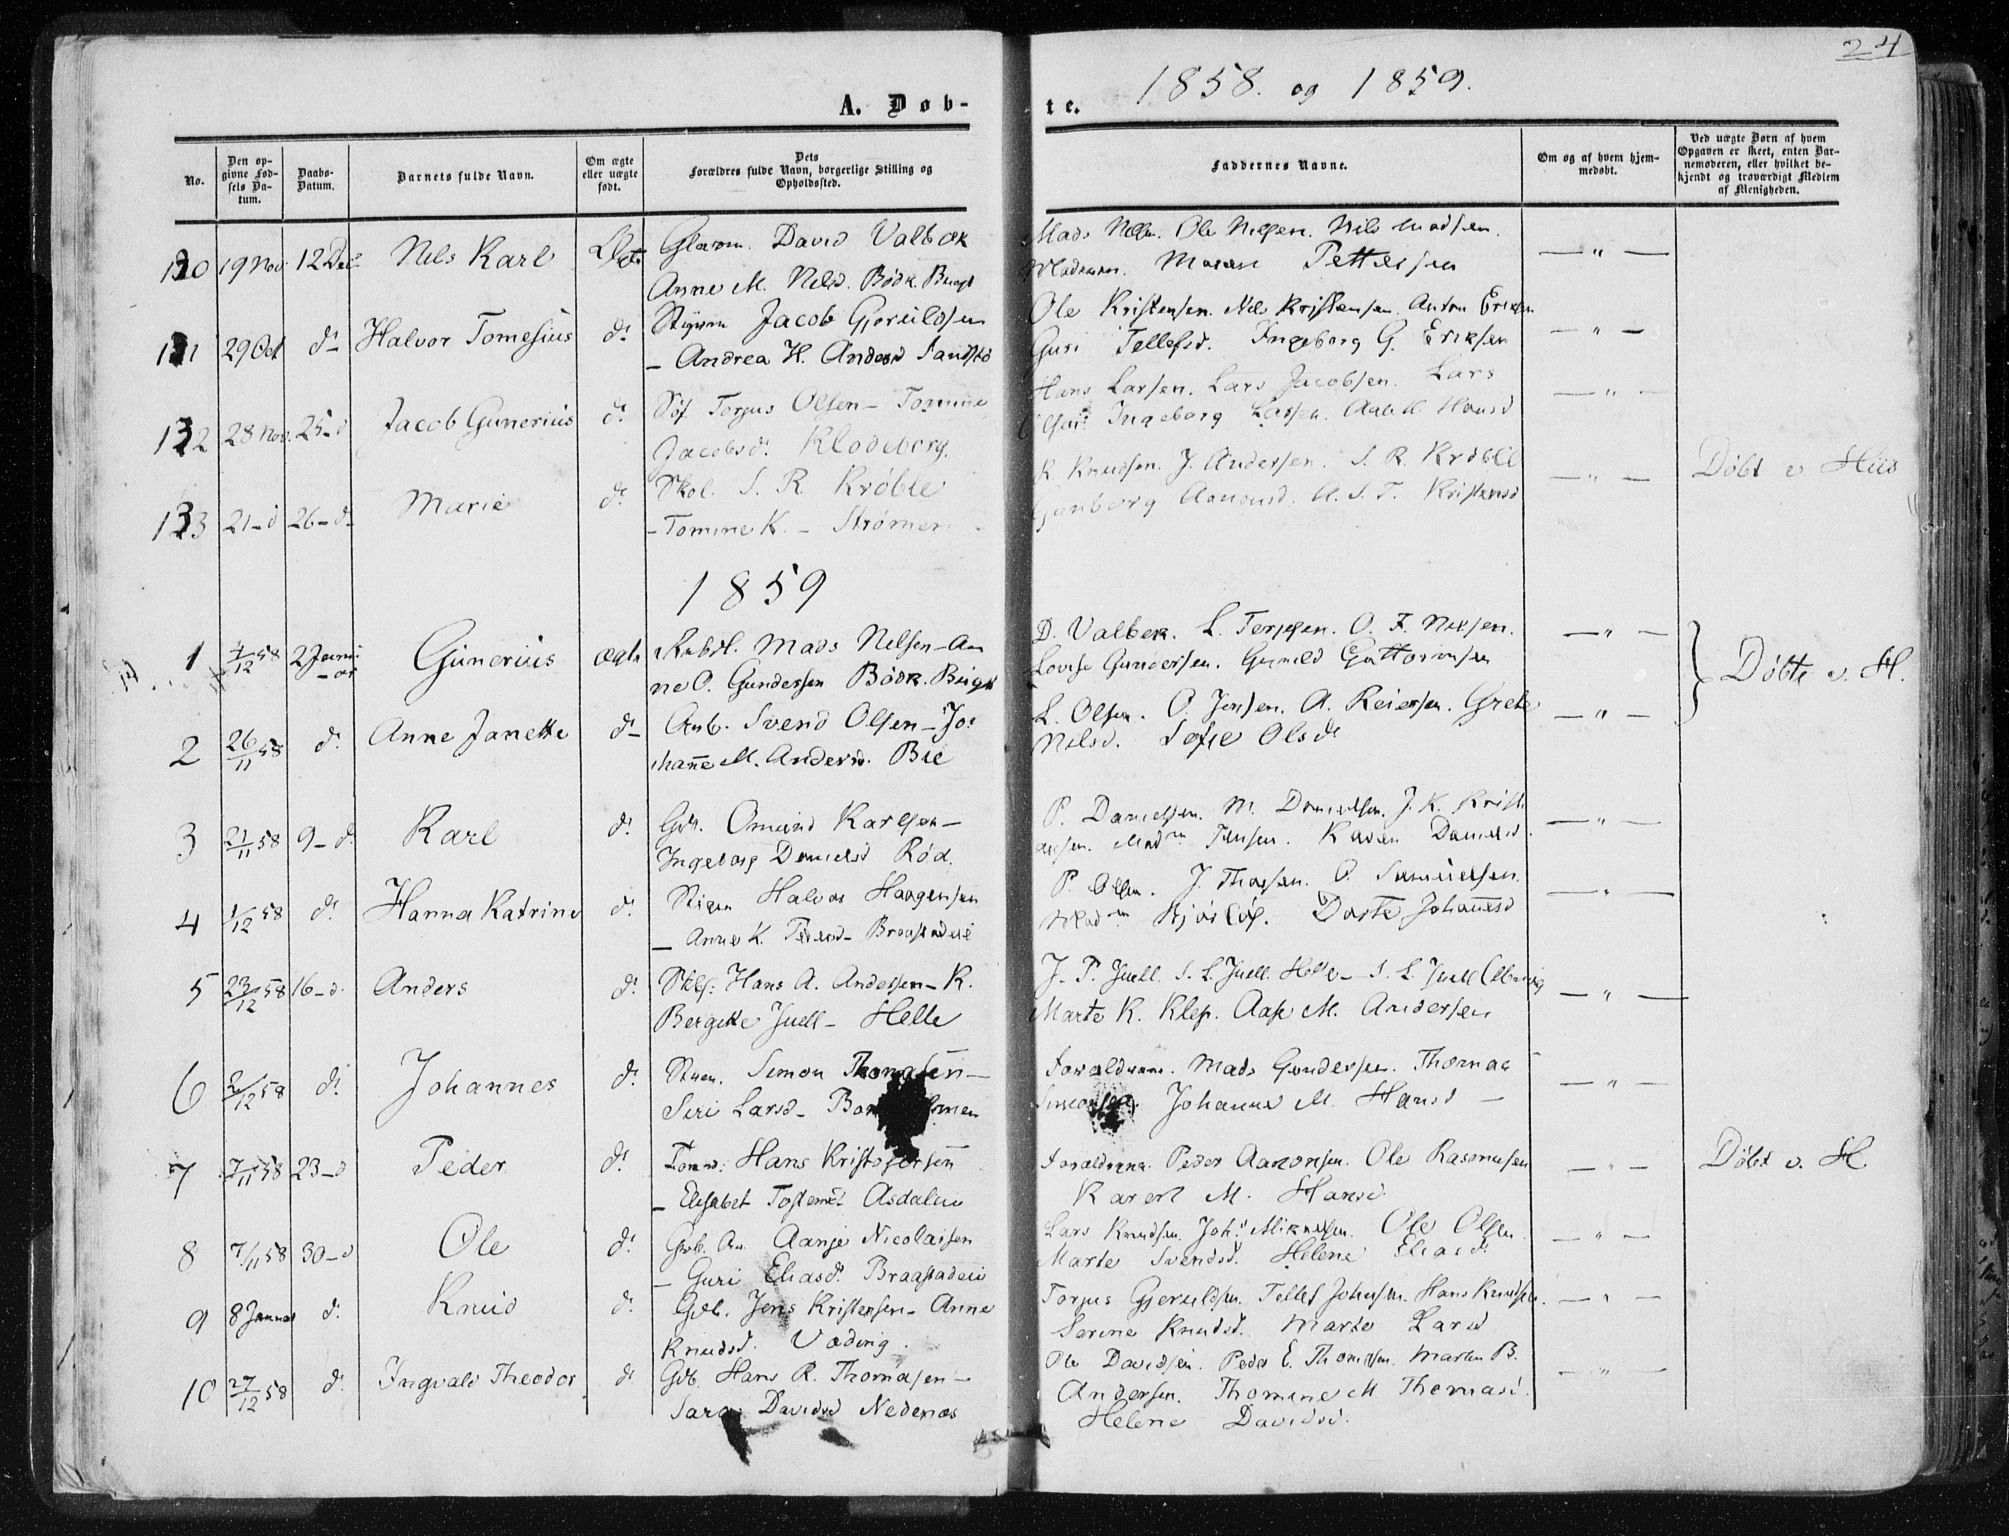 24
1858. og 1859.
A. Døb-
te.
No.
Den op-
givne Fød-
sels Da-
tum.
Daabs-
Datum.
Barnets fulde Navn.
Om ægte
eller uægte
født.
Dets
Forældres fulde Navn, borgerlige Stilling og
Opholdssted.
Faddernes Navne.
Om og af hvem hjem-
medøbt.
Ved uægte Børn af hvem
Opgaven er skeet, enten Bar-
nemoderen, eller hvilket be-
kjendt og troværdigt Medlem
af Menigheden.
130 19 Nov. 12 Dec. Nils Karl
David Valbek
Anne M. Nilsd. Bødk.
Ole Nilsen. Nils Madsen.
Pettersen
131 29 Oct d. Halvor Tomesius d.
Styrm Jacob Gjeruldsen
– Andrea H. Andersd
Ole Kristensen. Nils Kristensen. Anton Eriksen
Guri Tellefsd. Ingeborg G. Eriksen
132 28 Nov. 25–d Jacob Gunerius d.
Søf Torjus Olsen – Tomine
Jacobsd. Klodeborg.
Hans Larsen. Lars Jacobsen. Lars
Ingeborg Hansd
133 21–d 26–d. Marie d.
Skol. S. R. Krøble
– Tomine K. – Strømer
K Knudsen. J. Andersen. S. R. Krøble
Gunborg Aanonsd. A. S. T. Kristensd
Døbt v Hiis
1859
1 7/12 58 2 Janu-
ar Gunerius ægte
Mads Nilsen – An
ne O. Gundersen Bødk.
D. Valbek. L. Terjesen. O. F. Nilsen.
Lovise Gundersen. Gunild
Døbte v. H.
2 26/11 58 d. Anne Janette d–
Arb. Svend Olsen – Jo-
hanne M. Andersd. Bie
L. Olsen. O. Jensen. A. Reiersen. Grete
Nilsd. Sofie Olsd
3 21/11 58 9–d. Karl d.
Gdb. Omund Karlsen –
Ingeborg Danielsd Rød.
P. Danielsen. M. Danielsen. J. K. Kristi
ansen. Mad.m Jensen. Karen Danielsd.
4 1/12 58 d. Hanna Katrine d.
Halvor Haagensen
– Anne K. Pedersd – Braastadeie
P. Olsen. J. Thorsen. O. Samuelsen.
Mad.m Dorte Johannesd
5 23/12 58 16–d. Anders d.
Hans A. Andersen – K.
Bergitte Juell – Helle
J. P. Juell. S. L. Juell. Helle – S. L. Juell
Marte K. Klep. Aase M. Andersen
6 2/12 58 d. Johannes d.
Simon Thomasen –
Siri Larsd –
Forældrene. Mads Gundersen. Thomas
Simonsen. Johanne M. Hansd –
7 7/11 58 23–d Peder d.
Hans Kristofersen
– Elisabet Asdalen
Forældrene. Peder Aanonsen. Ole Rasmusen
Karen M. Hansd
Døbt v. H.
8 7/11 58 30–d Ole d.
Aanje Nicolaisen
– Guri Eliasd. Braastadeie
Lars Knudsen. Joh. Mikkelsen. Ole Olsen
Marte Svendsd. Helene Eliasd.
9 8 Januar d. Knud d.
Gdb. Jens Kristensen – Anne
Knudsd. Væding.
Torjus Gjeruldsen. Tellef Johnsen. Hans Knudsen.
Serine Knudsd. Marte Larsd
10 27/12 58 d. Ingvald Theodor d
Gdb. Hans R. Thomasen –
Sara Davidsd Nedenæs
Ole Davidsen. Peder E. Thomasen. Marten B.
Andersen. Thomine M Thomasd.
Helene Davidsd.